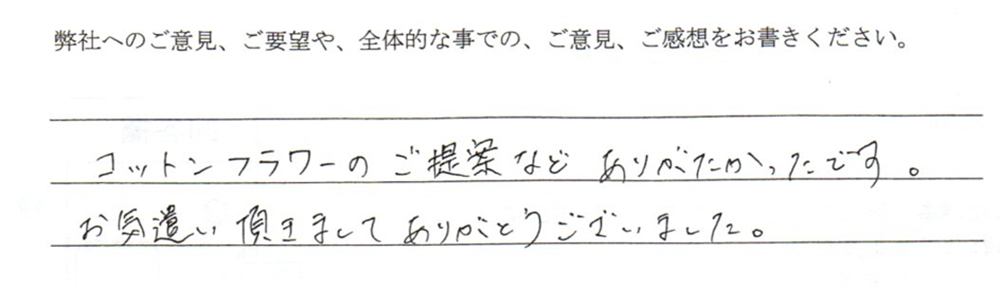 弊社へのご意見、ご要望や、全体的な事での、ご意見、ご感想をお書きください。
コットンフラワーのご提案など ありがたかったです。
お気遣い頂きまして ありがとうございました。